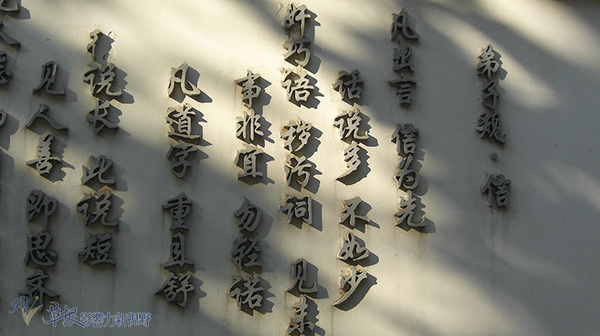 弟子规·信
凡出言 信为先
话说多 不如少
奸巧语 秽污词 见未
事非宜 勿轻诺
凡道字 重且舒
彼说长 此说短
见人善 即思齐
影响力新视野